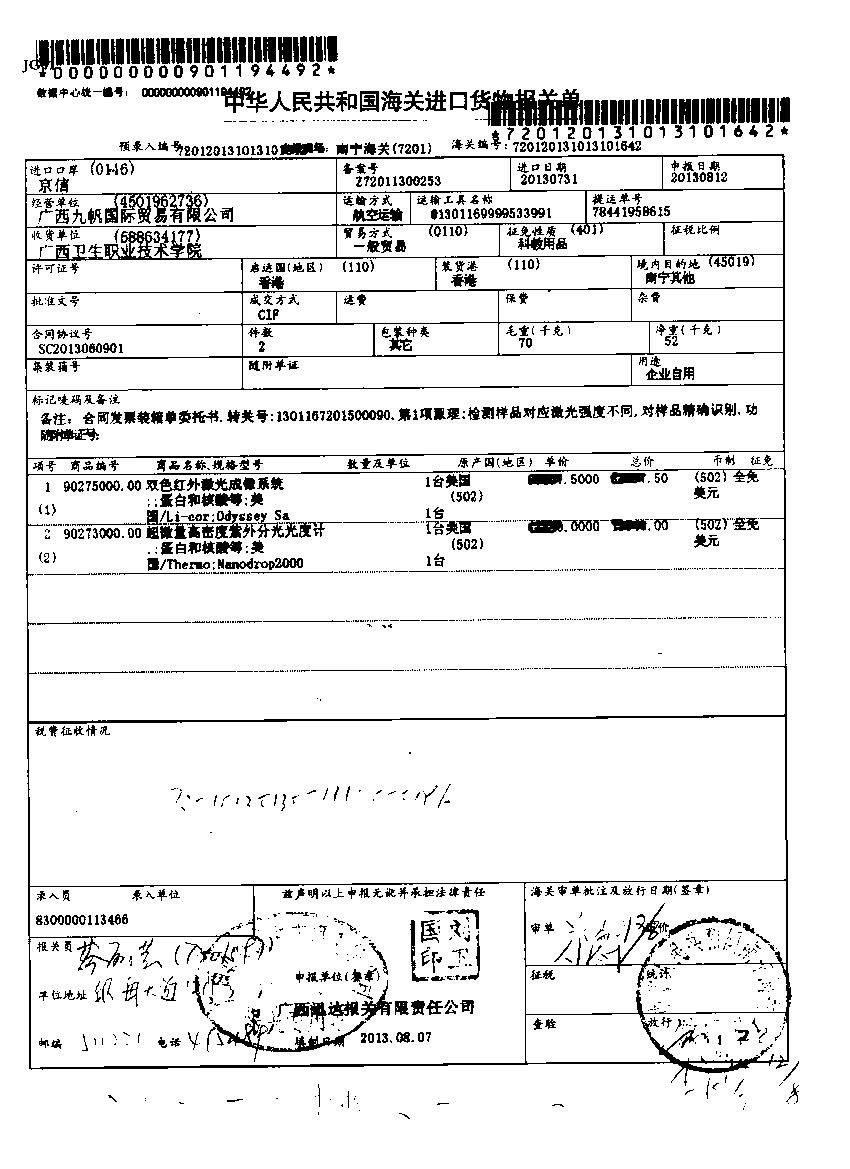 *0000000000901194492*
数据中心统一编号: 0000000000901194492
中华人民共和国海关进口货物报关单
*720120131013101642*
预录入编号: 南宁海关(7201) 海关编号: 720120131013101642
进口口岸 (0146) 备案号 进口日期 申报日期
京信 Z72011300253 20130731 20130812
经营单位 (4501962736) 运输方式 运输工具名称 提运单号
广西九帆国际贸易有限公司 航空运输 @1301169999533991 78441958615
收货单位 (688634177) 贸易方式 (0110) 征免性质 (401) 征税比例
广西卫生职业技术学院 一般贸易 科教用品
许可证号 启运国(地区) (110) 装货港 (110) 境内目的地 (45019)
香港 香港 南宁其他
批准文号 成交方式 运费 保费 杂费
CIF
合同协议号 件数 包装种类 毛重(千克) 净重(千克)
SC2013060901 2 其它 70 52
集装箱号 随附单证 用途
企业自用
标记唛码及备注
备注: 合同发票装箱单委托书, 转关号:1301167201500090, 第1项原理:检测样品对应激光强度不同, 对样品精确识别, 功
随附单证号:
项号 商品编号 商品名称、规格型号 数量及单位 原产国(地区) 单价 总价 币制 征免
1 90275000.00 双色红外激光成像系统 1台 美国 .5000 .50 (502) 全免
(1) .:蛋白和核酸等;美 (502) 美元
国/Li-cor;Odyssey Sa 1台
2 90273000.00 超微量高密度紫外分光光度计 1台 美国 .0000 .00 (502) 全免
(2) .:蛋白和核酸等;美 (502) 美元
国/Thermo;Nanodrop2000 1台
税费征收情况
录入员 录入单位 兹声明以上申报无讹并承担法律责任 海关审单批注及放行日期(签章)
8300000113466
报关员 国刘印卫 审单 审价
申报单位(签章) 征税 统计
单位地址
广西迅达报关有限责任公司
查验 放行
邮编 电话 填制日期 2013.08.07